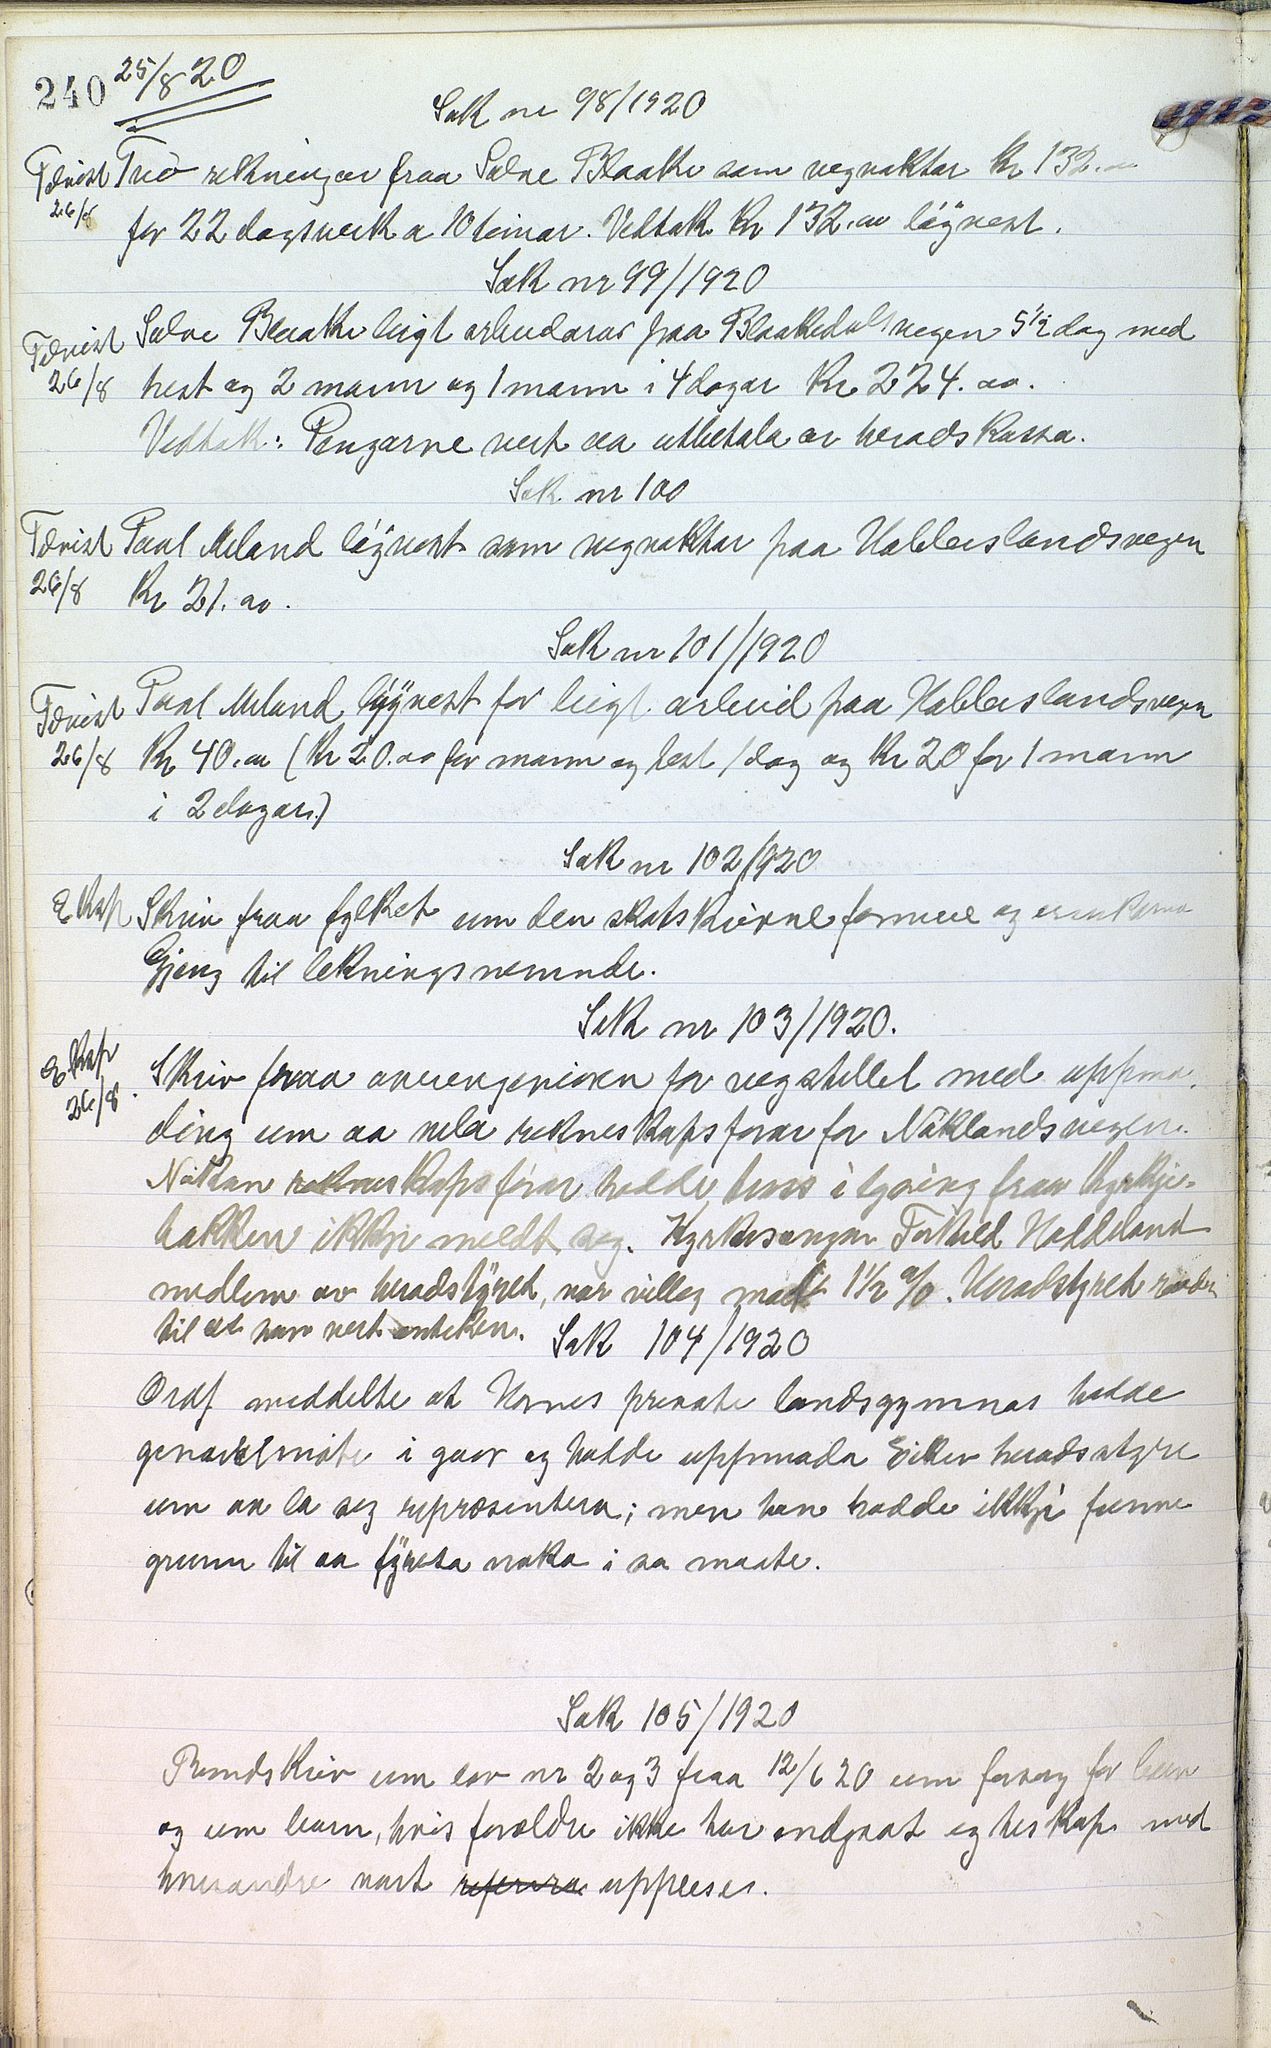 240 25/8 20
Sak nr 98/1920
Tævist Tvo rekningar fraa Salve Blaake som vegvaktar Kr 132.00
26/8 for 22 dagsverk a 10 timar. Vedtak Kr 132.00 løyvest.
Sak nr 99/1920
Tævist Salve Blaake leigt arbeidarar paa Blaakedalsvegen 5 1/2 dag med
26/8 hest og 2 mann og 1 mann i 4 dagar Kr 224.00.
Vedtak: Pengarne vert aa utbetala av heradskassa.
Sak nr 100
Tævist Paal Meland løyvest som vegvaktar paa Habbeslandsvegen
26/8 Kr 21.00.
Sak nr 101/1920
Tævist Paal Meland løyvest for leigt arbeid paa Habbeslandsvegen
26/8 Kr 40.00 (Kr 20.00 for mann og hest 1 dag og Kr 20 for 1 mann
i 2 dagar.)
Sak nr 102/1920
Ekstr Skriv fraa fylket um den skatskierne formue og
Gjeng til likningsnemnde.
Sak nr 103/1920.
26/8. Skriv fraa overingeniøren for vegstellet med uppmo
ding um aa vela rekneskapsførar for Nåklandsvegen.
Nokon rekneskapsførar hadde tross i lysing fraa Kyrkje-
bakken ikkje meldt seg. Kyrkesongar Torkeld Haddeland
medlem av heradstyret, var villeg modt 1 1/2 %. Heradstyret raader
til at han vert anteken.
Sak 104/1920
Ordf meddelte at Hornes private landsgymnas hadde
generelmøte i gaar og hadde uppmoda Eiken heradsstyre
um aa la seg repræsentera; men han hadde ikkje funne
grunn til aa fyreta noko i saa maate.
Sak 105/1920
Rundskriv um lov nr 2 og 3 fraa 12/6 20 um forsorg for barn
og um barn, hvis forældre ikke har indgaat egteskap med
hverandre vart referera upplese.